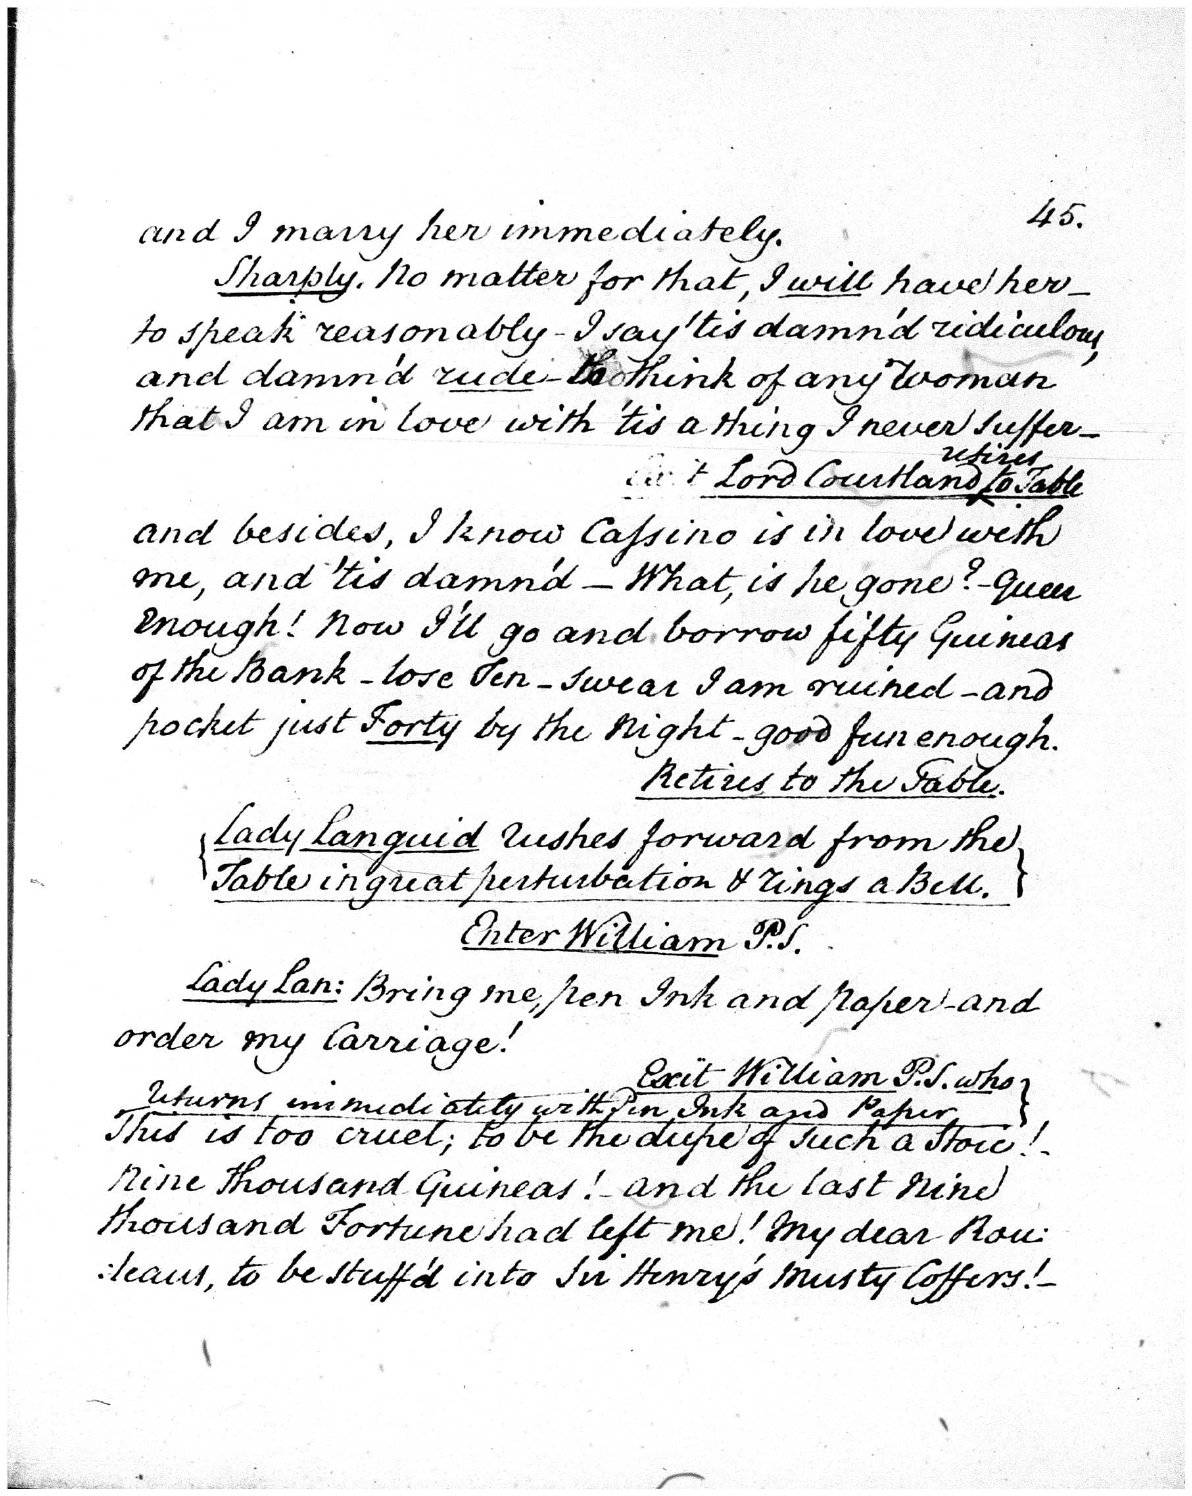 45.
and I marry her immediately.
Sharply. No matter for that, I will have her –
to speak reasonably – I say 'tis damn'd ridiculous,
and damn'd rude – to think of any Woman
that I am in love with 'tis a thing I never suffer –
retires
Lord Courtland to Table
and besides, I know Caſsino is in love with
me, and 'tis damn'd – What, is he gone? – Queer
Enough! Now I'll go and borrow fifty Guineas
of the Bank – lose Ten – swear I am ruined – and
pocket just Forty by the Night – good fun enough.
Retires to the Table.
{Lady Languid rushes forward from the
Table in great perturbation & rings a Bell.}
Enter William P.S.
Lady Lan: Bring me, pen Ink and Paper – and
order my Carriage!
Exit William P.S. who
returns immediately with Pen, Ink and Paper}
This is too cruel; to be the dupe of such a Stoic! –
Nine thousand Guineas! – and the last Nine
thousand Fortune had left me! My dear Rou:
:leaus, to be stuff'd into Sir Henry's Musty Coffers! –